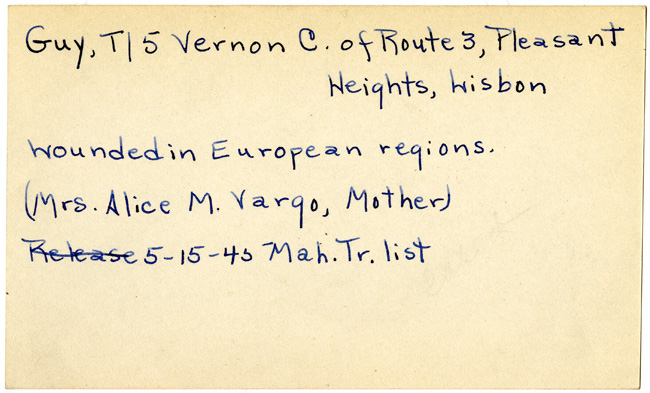 Guy, T/5 Vernon C. of Route 3, Pleasant
Heights, Lisbon
wounded in European regions.
(Mrs. Alice M. Vargo, Mother)
Release 5-15-45 Mah. Tr. list